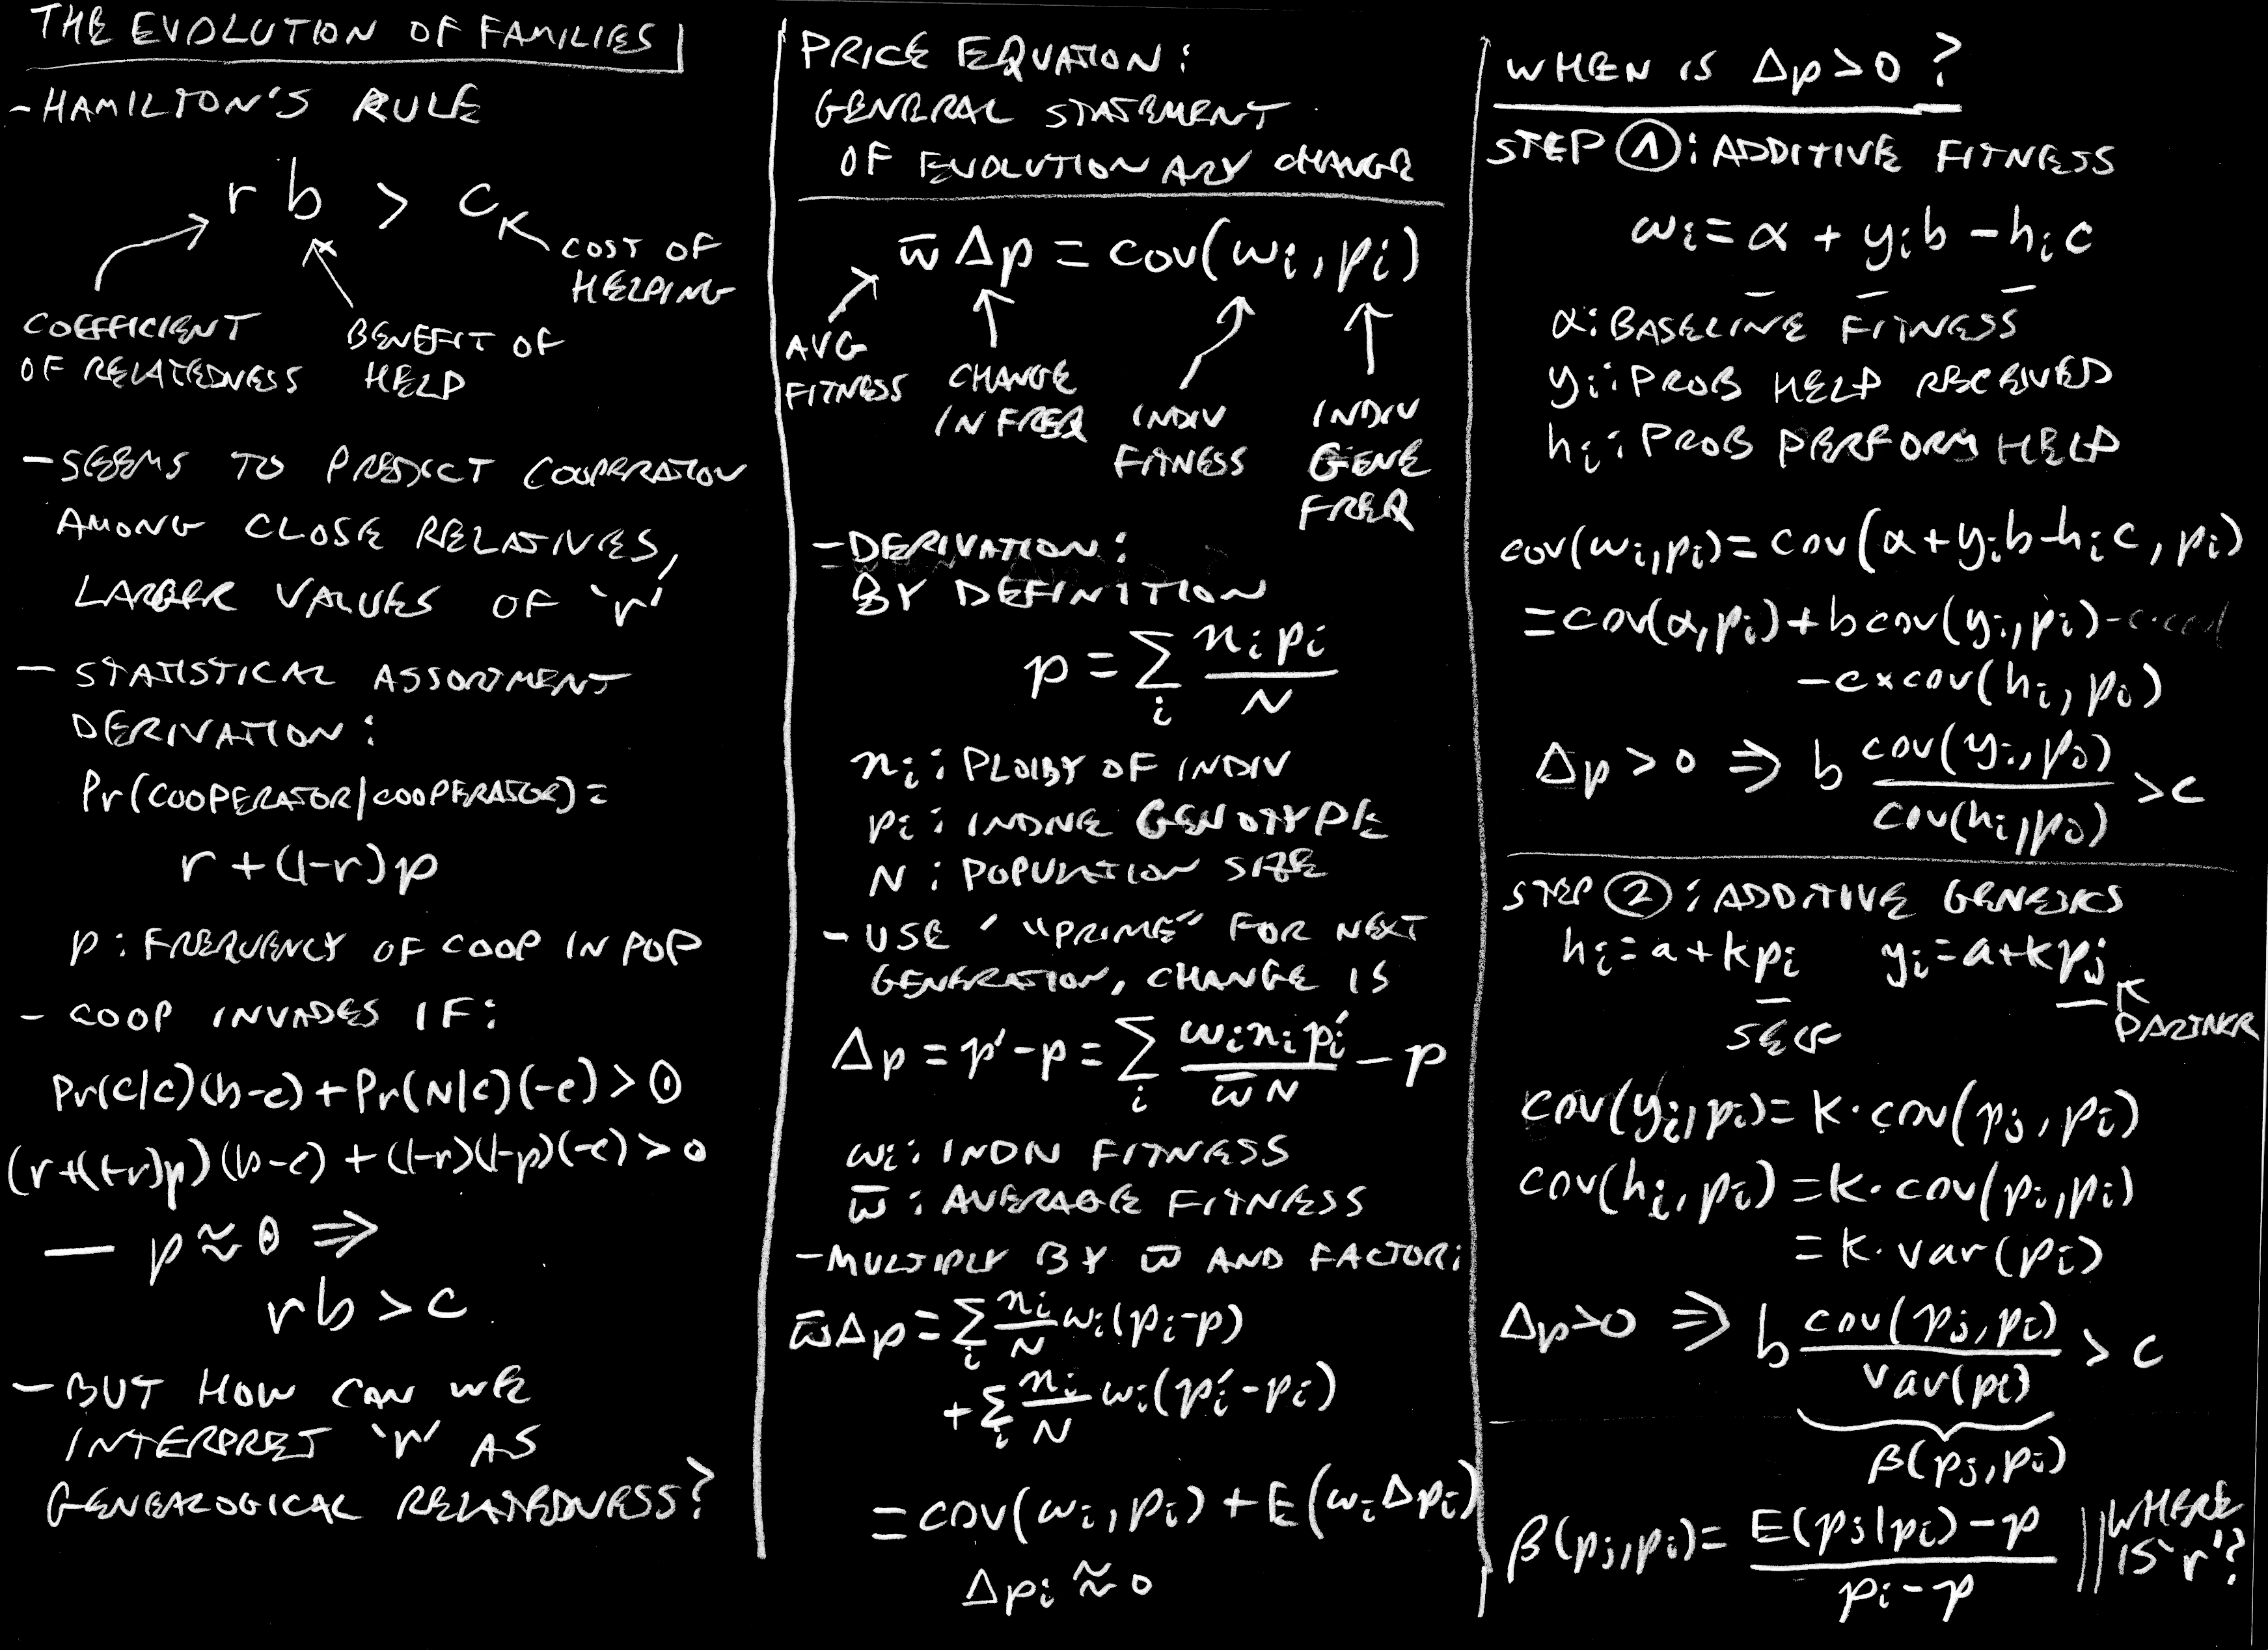 THE EVOLUTION OF FAMILIES
- HAMILTON'S RULE
r b > c
COST OF
HELPING
COEFFICIENT
OF RELATEDNESS
BENEFIT OF
HELP
- SEEMS TO PREDICT COOPERATION
AMONG CLOSE RELATIVES,
LARGER VALUES OF 'r'
- STATISTICAL ASSORTMENT
DERIVATION:
Pr(COOPERATOR|COOPERATOR) =
r + (1-r)p
p : FREQUENCY OF COOP IN POP
- COOP INVADES IF:
Pr(C|C)(b-c) + Pr(N|C)(-c) > 0
(r+(1-r)p)(b-c) + (1-r)(1-p)(-c) > 0
— p ≈ 0 ⇒
rb > c
- BUT HOW CAN WE
INTERPRET 'r' AS
GENEALOGICAL RELATEDNESS?
PRICE EQUATION:
GENERAL STATEMENT
OF EVOLUTIONARY CHANGE
w̄ Δp = cov(wᵢ, pᵢ)
AVG
FITNESS
CHANGE
IN FREQ
INDIV
FITNESS
INDIV
GENE
FREQ
- DERIVATION:
BY DEFINITION
p = Σᵢ nᵢ pᵢ / N
nᵢ : PLOIDY OF INDIV
pᵢ : INDIVE GENOTYPE
N : POPULATION SIZE
- USE ' "PRIME" FOR NEXT
GENERATION, CHANGE IS
Δp = p' - p = Σᵢ wᵢnᵢpᵢ' / w̄N - p
wᵢ : INDIV FITNESS
w̄ : AVERAGE FITNESS
- MULTIPLY BY w̄ AND FACTOR:
w̄Δp = Σᵢ nᵢ/N wᵢ(pᵢ-p)
+ Σᵢ nᵢ/N wᵢ(pᵢ'-pᵢ)
= cov(wᵢ, pᵢ) + E(wᵢ Δpᵢ)
Δpᵢ ≈ 0
WHEN IS Δp > 0 ?
STEP ①: ADDITIVE FITNESS
wᵢ = α + yᵢb - hᵢc
α: BASELINE FITNESS
yᵢ: PROB HELP RECEIVED
hᵢ: PROB PERFORM HELP
cov(wᵢ,pᵢ) = cov(α + yᵢb - hᵢc, pᵢ)
= cov(α,pᵢ) + b cov(yᵢ,pᵢ)
- c × cov(hᵢ, pᵢ)
Δp > 0 ⇒ b cov(yᵢ,pᵢ) / cov(hᵢ,pᵢ) > c
STEP ②: ADDITIVE GENETICS
hᵢ = a + kpᵢ yᵢ = a + kpⱼ
SELF
PARTNER
cov(yᵢ,pᵢ) = k · cov(pⱼ, pᵢ)
cov(hᵢ, pᵢ) = k · cov(pᵢ,pᵢ)
= k · var(pᵢ)
Δp>0 ⇒ b cov(pⱼ,pᵢ) / var(pᵢ) > c
β(pⱼ,pᵢ)
β(pⱼ,pᵢ) = E(pⱼ|pᵢ) - p / pᵢ - p
WHERE
IS 'r'?